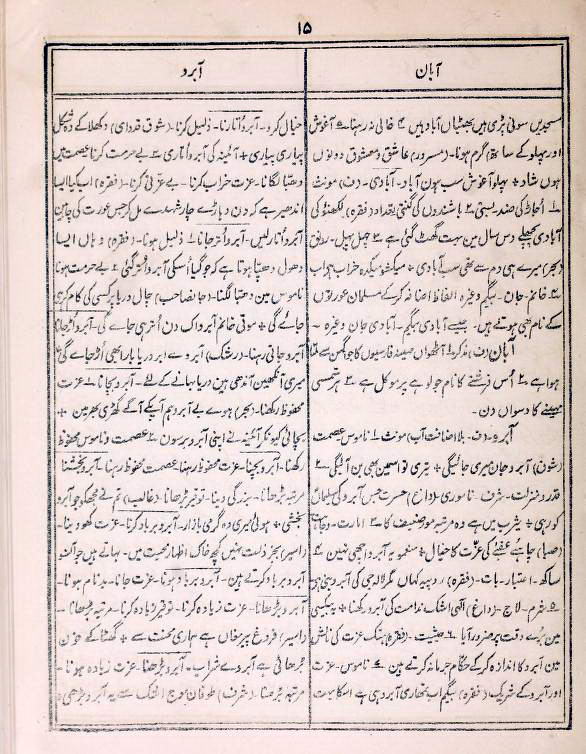 ۱۵
آبان
آبرو
مسجدیں سونی پڑی ہیں بھٹیاں آباد ہیں ۴ خالی نہ رہنا ۵ آغوش
اور پہلو کے ساتھ) گرم ہونا۔ (مسرور) عاشق و معشوق دونوں
ہوں شاد ٭ پہلو آغوش سب ہوں آباد۔ آبادی۔ (ف) مونث
۱ اُجاڑ کی ضد۔ بستی ۲ باشندوں کی گنتی۔ تعداد (فقرہ) لکھنؤ کی
آبادی پچھلے دس سال میں بہت گھٹ گئی ہے ۳ چہل پہل۔ رونق
(بحر) میرے ہی دم سے تھی سب آبادی ٭ میکشو میکدہ خراب ہوا اب
۴ خانم۔ جان۔ بیگم وغیرہ الفاظ اضافہ کر کے مسلمان عورتوں
کے نام بھی ہوتے ہیں۔ جیسے آبادی بیگم۔ آبادی جان وغیرہ۔
آبان (ف) مذکر ۱ آٹھواں مہینہ فارسیوں کا جو اگہن سے ملتا
ہوا ہے ۲ اُس فرشتے کا نام جو لوہے پر موکل ہے ۳ ہر شمسی
مہینے کا دسواں دن۔
آبرو (ف۔ بلا اضافت آب) مونث ۱ ناموس عصمت
(شوق) آبرو جان میری جائیگی ٭ تیری تو اسمیں بھی بن آئیگی ۲
قدر و منزلت۔ شرف۔ ناموری (داغ) حسرت جس آبرو کی سلیمان
کو رہی ٭ یثرب میں ہے وہ مرتبہ مور ضعیف کا ۳ امارت۔ وجاہت
(صبا) چاہئے عقبیٰ کی عزت کا خیال ٭ منعمو یہ آبرو اچھی نہیں ۴
ساکھ۔ اعتبار۔ بات۔ (فقرہ) روپیہ کہاں مگر لالہ جی کی آبرو بنی ہے
۵ شرم۔ لاج۔ (داغ) الٰہی اشک ندامت کی آبرو رکھنا ٭ یہ بیکسی
میں بُرے وقت پر ضرور آیا ۶ حیثیت۔ (فقرہ) ہتک عزت کی نالش
میں آبرو کا اندازہ کر کے حکام جرمانہ کرتے ہیں ۷ ناموس۔ عزت
اور آبرو کے شریک (فقرہ) بیگم اب تمھاری آبرو ہی ہے اسکا بہت
خیال کرو۔ آبرو اُتارنا۔ ذلیل کرنا۔ (شوق قدوائی) دکھلا کے وہ شکل
پیاری پیاری ٭ آئینہ کی آبرو اُتاری ۲ بے حرمت کرنا عصمت میں
دھبّا لگانا۔ عزت خراب کرنا۔ بے عزتی کرنا۔ (فقرہ) اب کیا ایسا
اندھیر ہے کہ دن دہاڑے چار شہدے مل کر جس عورت کی چاہیں
آبرو اُتار لیں۔ آبرو اُتر جانا ۱ ذلیل ہونا۔ (فقرہ) وہاں ایسا
دھول دھپّا ہوتا ہے کہ جو گیا اُسکی آبرو اُتر گئی ۲ بے حرمت ہونا
ناموس میں دھبّا لگنا۔ (جانصاحب) چال دریا پر کسی کی کام کر ہی
جائے گی ٭ موتی خانم آبرو اک دن اُتر ہی جائے گی۔ آبرو اُڑ جانا
آبرو جاتی رہنا۔ (رشک) آبروے ابر دریا بار ابھی اُڑ جاے گی ٭
میری آنکھیں آندھی ہیں دریا بہانے کے لئے۔ آبرو بچانا ۱ عزت
محفوظ رکھنا۔ (بحر) ہوے بے آبرو ہم آپکے آگے گھڑی بھر میں ٭
بچائی کیونکر آئینہ نے اپنی آبرو برسوں ۲ عصمت و ناموس محفوظ
رکھنا۔ آبرو بچنا۔ عزت محفوظ رہنا عصمت محفوظ رہنا۔ آبرو بخشنا
مرتبہ بڑھانا۔ بزرگی دینا۔ توقیر بڑھانا۔ (غالب) تم نے مجھکو جو آبرو
بخشی ٭ ہوئی میری وہ گرمی بازار۔ آبرو برباد کرنا۔ عزت کھو دینا۔
(اسیر) بجز ذلت نہیں کچھ خاک اظہار محبت میں۔ بہاتے ہیں جو آنسو
آبرو برباد کرتے ہیں۔ آبرو برباد ہونا۔ عزت جانا۔ بدنام ہونا۔
آبرو بڑھانا۔ عزت زیادہ کرنا۔ توقیر زیادہ کرنا۔ مرتبہ بڑھانا۔
(اسیر) فروغ بیر مغاں ہے ہماری محنت سے ٭ گھٹا کے خون
بڑھائی ہے آبروے شراب۔ آبرو بڑھنا۔ عزت زیادہ ہونا۔
مرتبہ بڑھنا۔ (شرف) طوفان موج اشک سے یہ آبرو بڑھی ٭